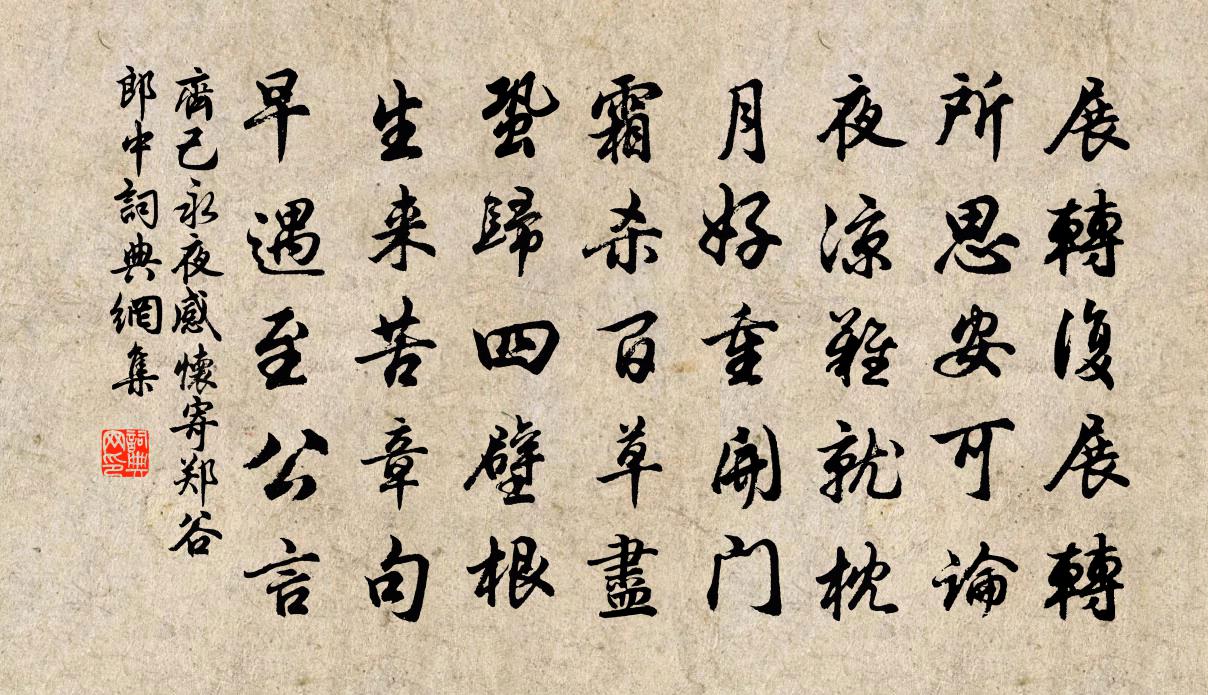 展轉復展轉
所思安可論
夜涼難就枕
月好重開門
霜杀百草盡
蛩歸四壁根
生来苦章句
早遇至公言
齊己永夜感懷寄郑谷
郎中詞典網集
詞典
网印